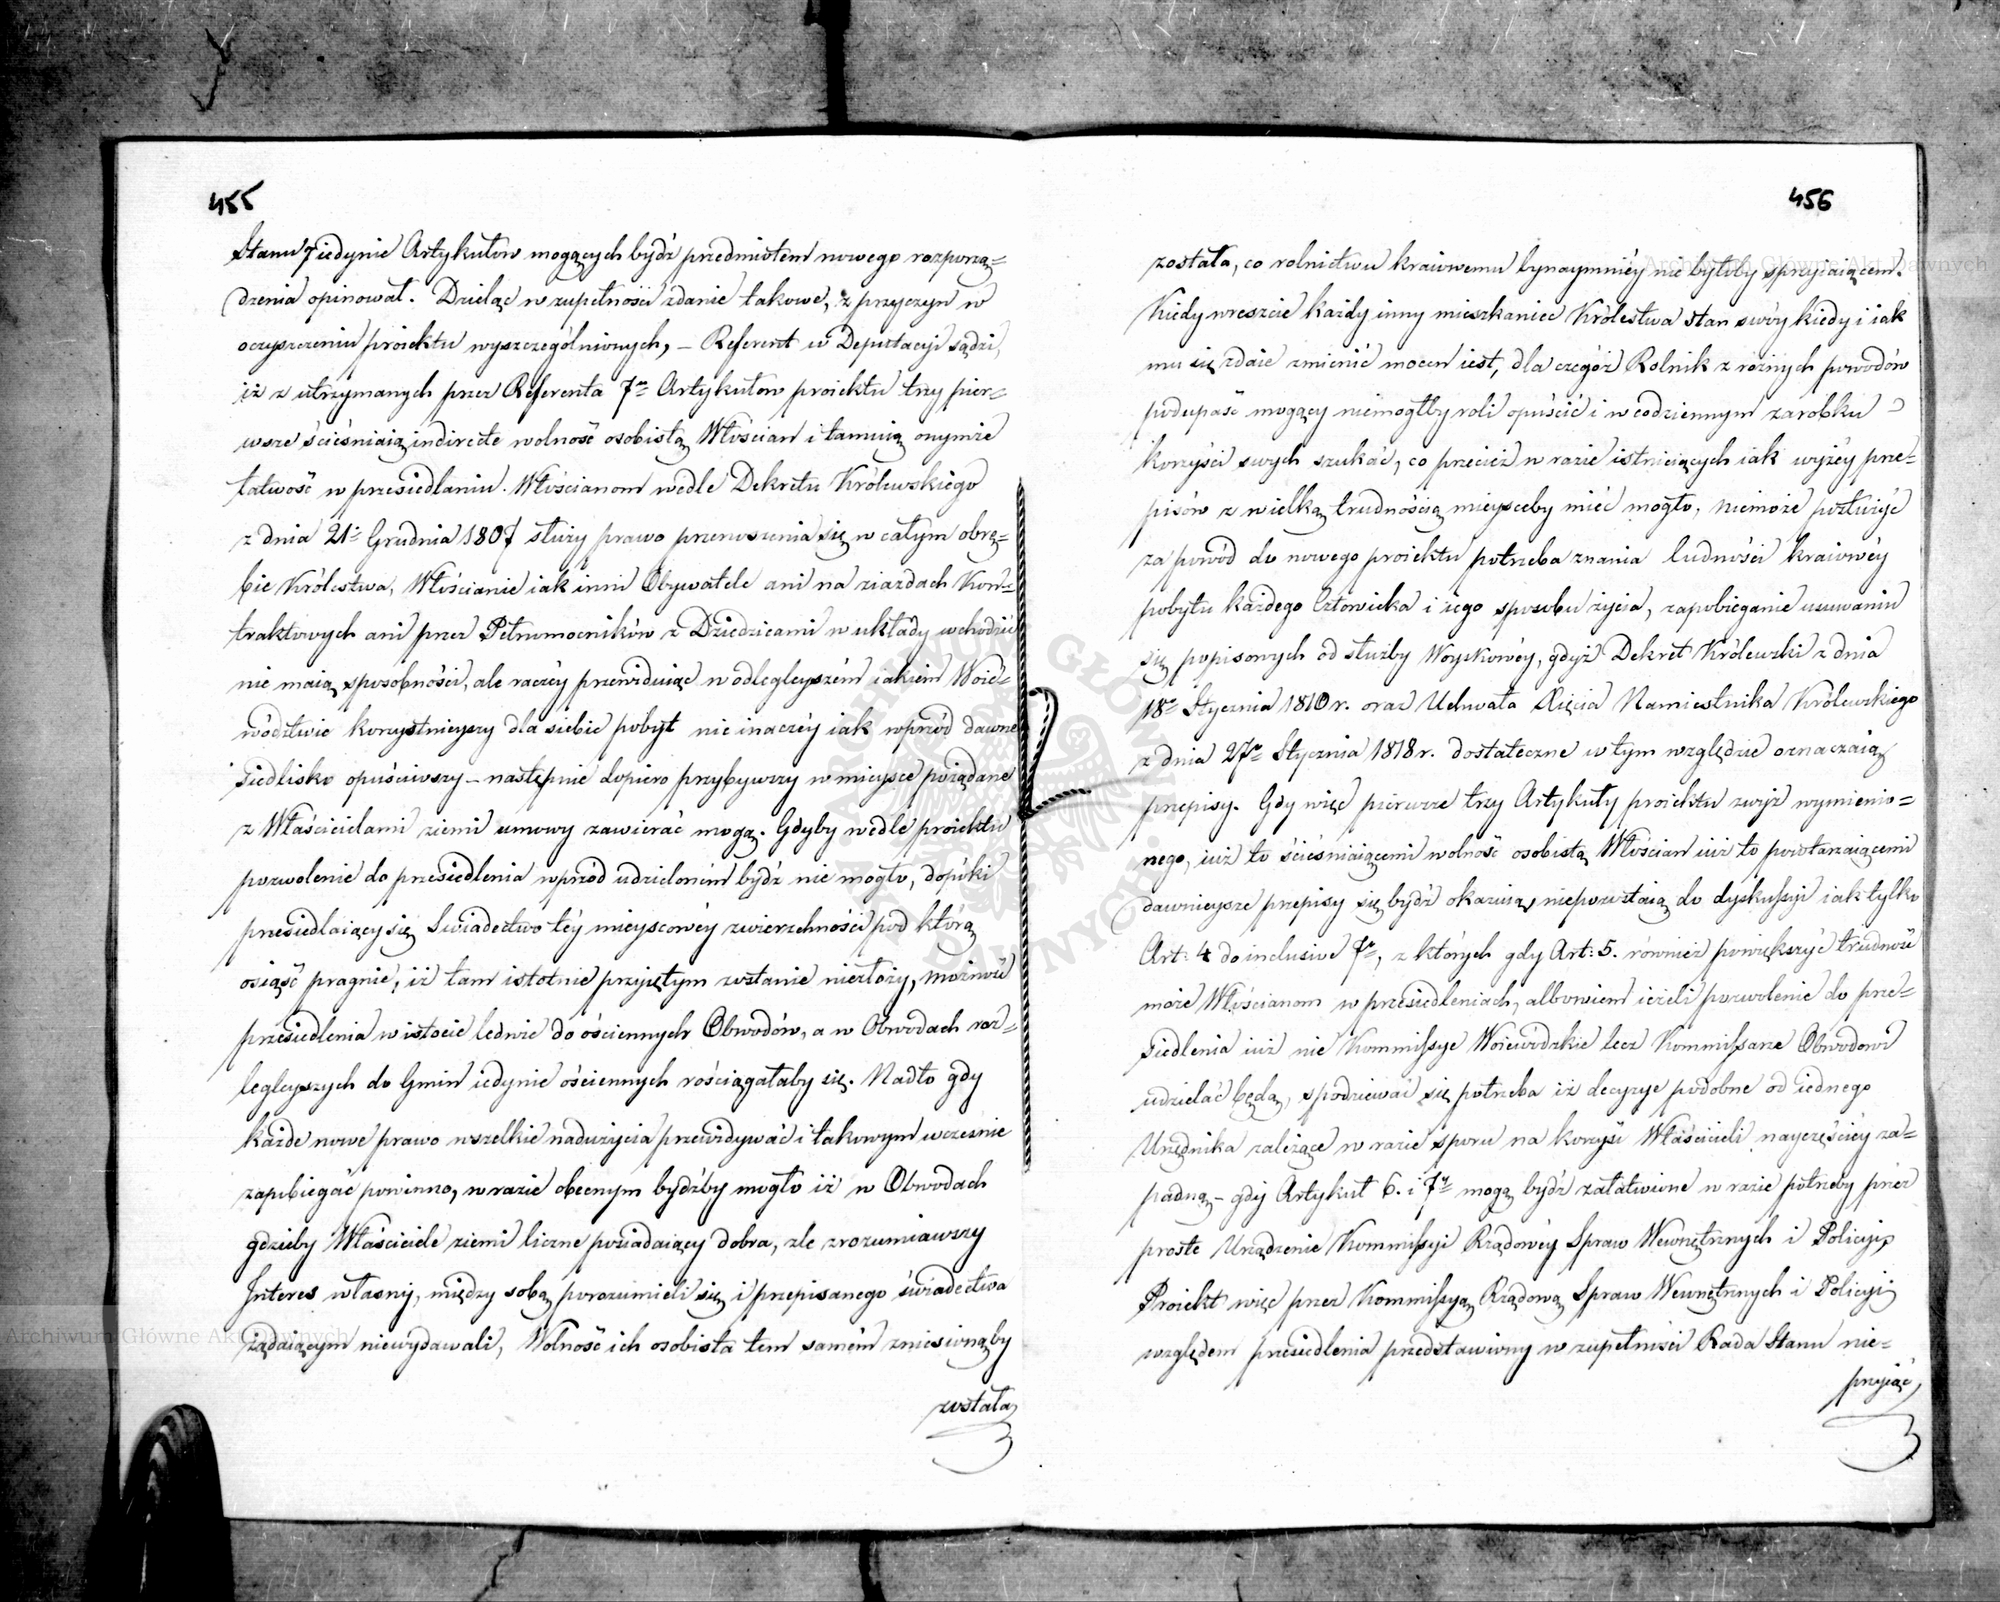 455
Stanu 7 iedynie Artykułów mogących bydź przedmiotem nowego rozporzą=
dzenia opinował. Dzieląc w zupełności zdanie takowe, z przyczyn w
oczyszczeniu proiektu wyszczególnionych, – Referent w Deputacyi sądzi,
iż z utrzymanych przez Referenta 7u Artykułów proiektu trzy pier=
wsze ścieśniaią indirecte wolność osobistą Włościan i tamuią onymże
łatwość w przesiedlaniu. Włościanom wedle Dekretu Królewskiego
z dnia 21= Grudnia 1807 służy prawo przenoszenia się w całym obrę=
bie Królestwa, Włościanie iak inni Obywatele ani na ziazdach Kon=
traktowych ani przez Pełnomocników z Dziedzicami w układy wchodzić
nie maią sposobności, ale raczéy przewiduiąc w odlegleyszém iakiém Woie=
wództwie korzystnieyszy dla siebie pobyt nie inaczéy iak wpród dawne
siedlisko opuściwszy – następnie dopiero przybywszy w mieysce pożądane
z Właścicielami ziemi umowy zawierać mogą. Gdyby wedle proiektu
pozwolenie do przesiedlenia wpród udzieloném bydź nie mogło, dopóki
przesiedlaiący się Swiadectwo téy mieyscowéy zwierzchności pod którą
osiąść pragnie, iż tam istotnie przyiętym zostanie niezłoży, możność
przesiedlenia w istocie ledwie do ościennych Obwodów, a w Obwodach roz=
legleyszych do Gmin iedynie ościennych rościągałaby się. Nadto gdy
każde nowe prawo wszelkie nadużycia przewidywać i takowym wcześnie
zapobiegać powinno, w razie obecnym bydźby mogło iż w Obwodach
gdzieby Właściciele ziemi liczne posiadaiący dobra, zle zrozumiawszy
Interes własny, między sobą porozumieli się i przepisanego świadectwa
żądaiącym niewydawali, Wolność ich osobista tem samém zniesionąby
została
456
została, co rolnictwu kraiowemu bynaymniéy nie byłoby sprzyiaiącem.
Kiedy wreszcie każdy inny mieszkaniec Królestwa stan swóy kiedy i iak
mu się zdaie zmienić mocen iest, dla czegóż Rolnik z różnych powodów
podupaść mogący niemogłby roli opuścić i w codziennym zarobku
korzyści swych szukać, co przecież w razie istnieiących iak wyżéy prze=
pisów z wielką trudnością mieysceby mieć mogło, niemoże posłużyć
za powód do nowego proiektu potrzeba znania ludności kraiowéy
pobytu każdego Człowieka i iego sposobu życia, zapobieganie usuwaniu
się popisowych od służby Woyskowéy, gdyż Dekret Królewski z dnia
18= Stycznia 1810 r. oraz Uchwała Xięcia Namiestnika Królewskiego
z dnia 27= Stycznia 1818 r. dostateczne w tym względzie oznaczaią
przepisy. Gdy więc pierwsze trzy Artykuły proiektu zwyż wymienio=
nego, iuż to ścieśniaiącemi wolność osobistą Włościan iuż to powtarzaiącemi
dawnieysze przepisy się bydź okazuią, niepozostaią do dyskussyi iak tylko
Art: 4 do inclusive 7o, z których gdy Art: 5. również powiększyć trudność
może Włościanom w przesiedleniach, albowiem ieżeli pozwolenie do prze=
siedlenia iuż nie Kommissye Woiewódzkie lecz Kommissarze Obwodowi
udzielać będą, spodziewać się potrzeba iż decyzye podobne od iednego
Urzędnika zależące w razie sporu na korzyść Właścicieli nayczęściéy za=
padną – gdy Artykuł 6. i 7y mogą bydź załatwione w razie potrzeby przez
proste Urządzenie Kommissyi Rządowéy Spraw Wewnętrznych i Policyi,
Proiekt więc przez Kommissyą Rządową Spraw Wewnętrznych i Policyi
względem przesiedlenia przedstawiony w zupełności Rada Stanu nie=
przyiąć,
Archiwum Główne Akt Dawnych
Archiwum Główne Akt Dawnych